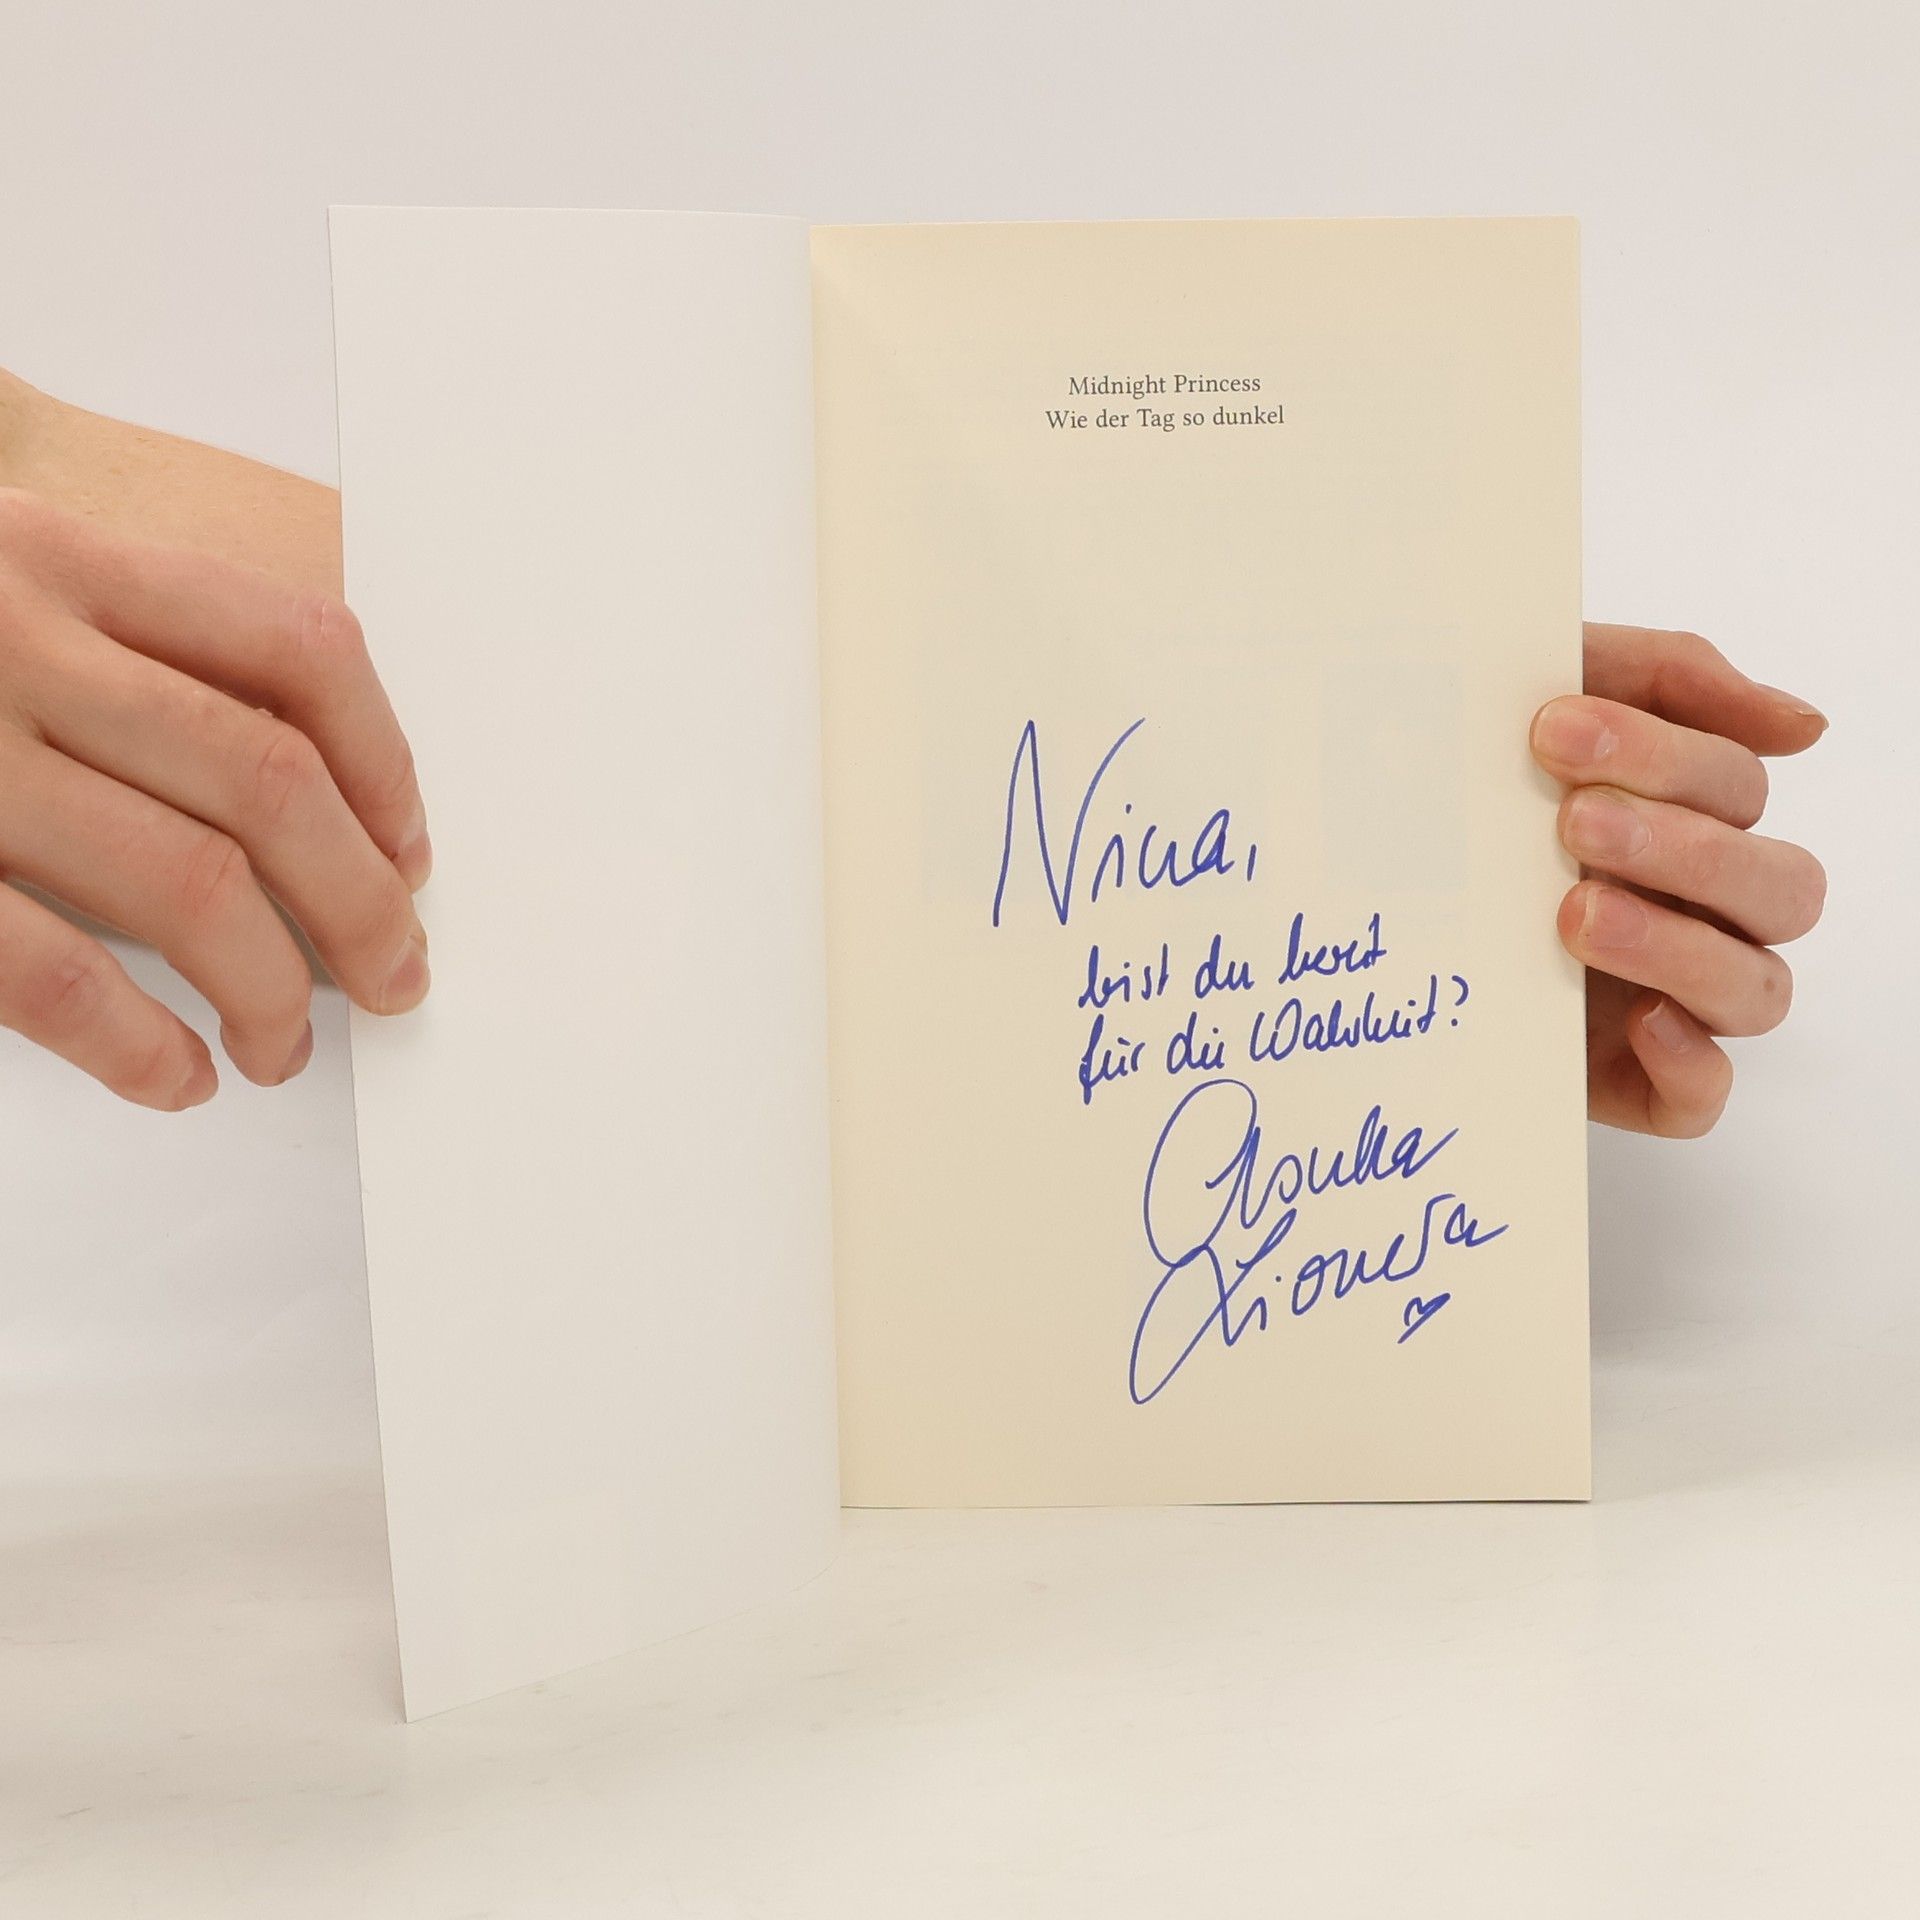 Midnight Princess
Wie der Tag so dunkel
Nina,
bist du bereit
für die Wahrheit?
Asuka
Lionera